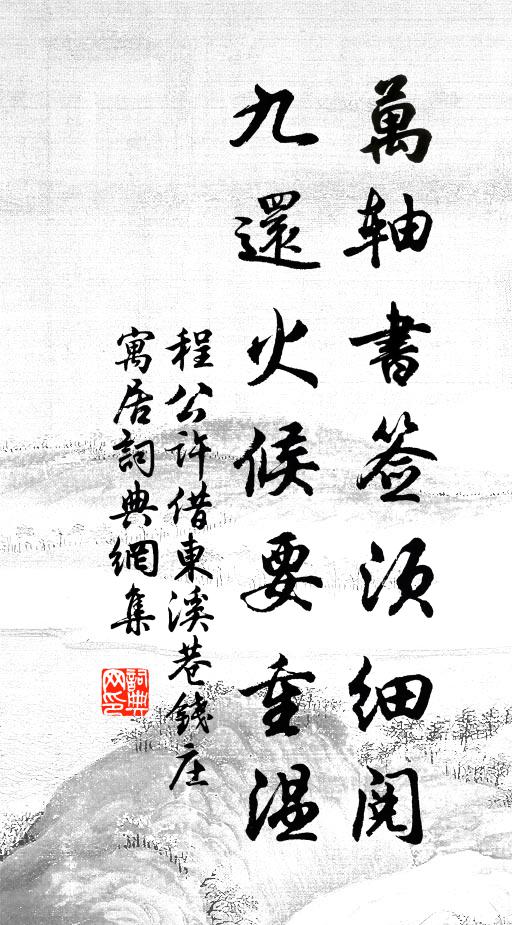 萬軸書签須細閱
九還火候要重温
程公許借東溪巷錢庄
寓居詞典網集
詞典网印